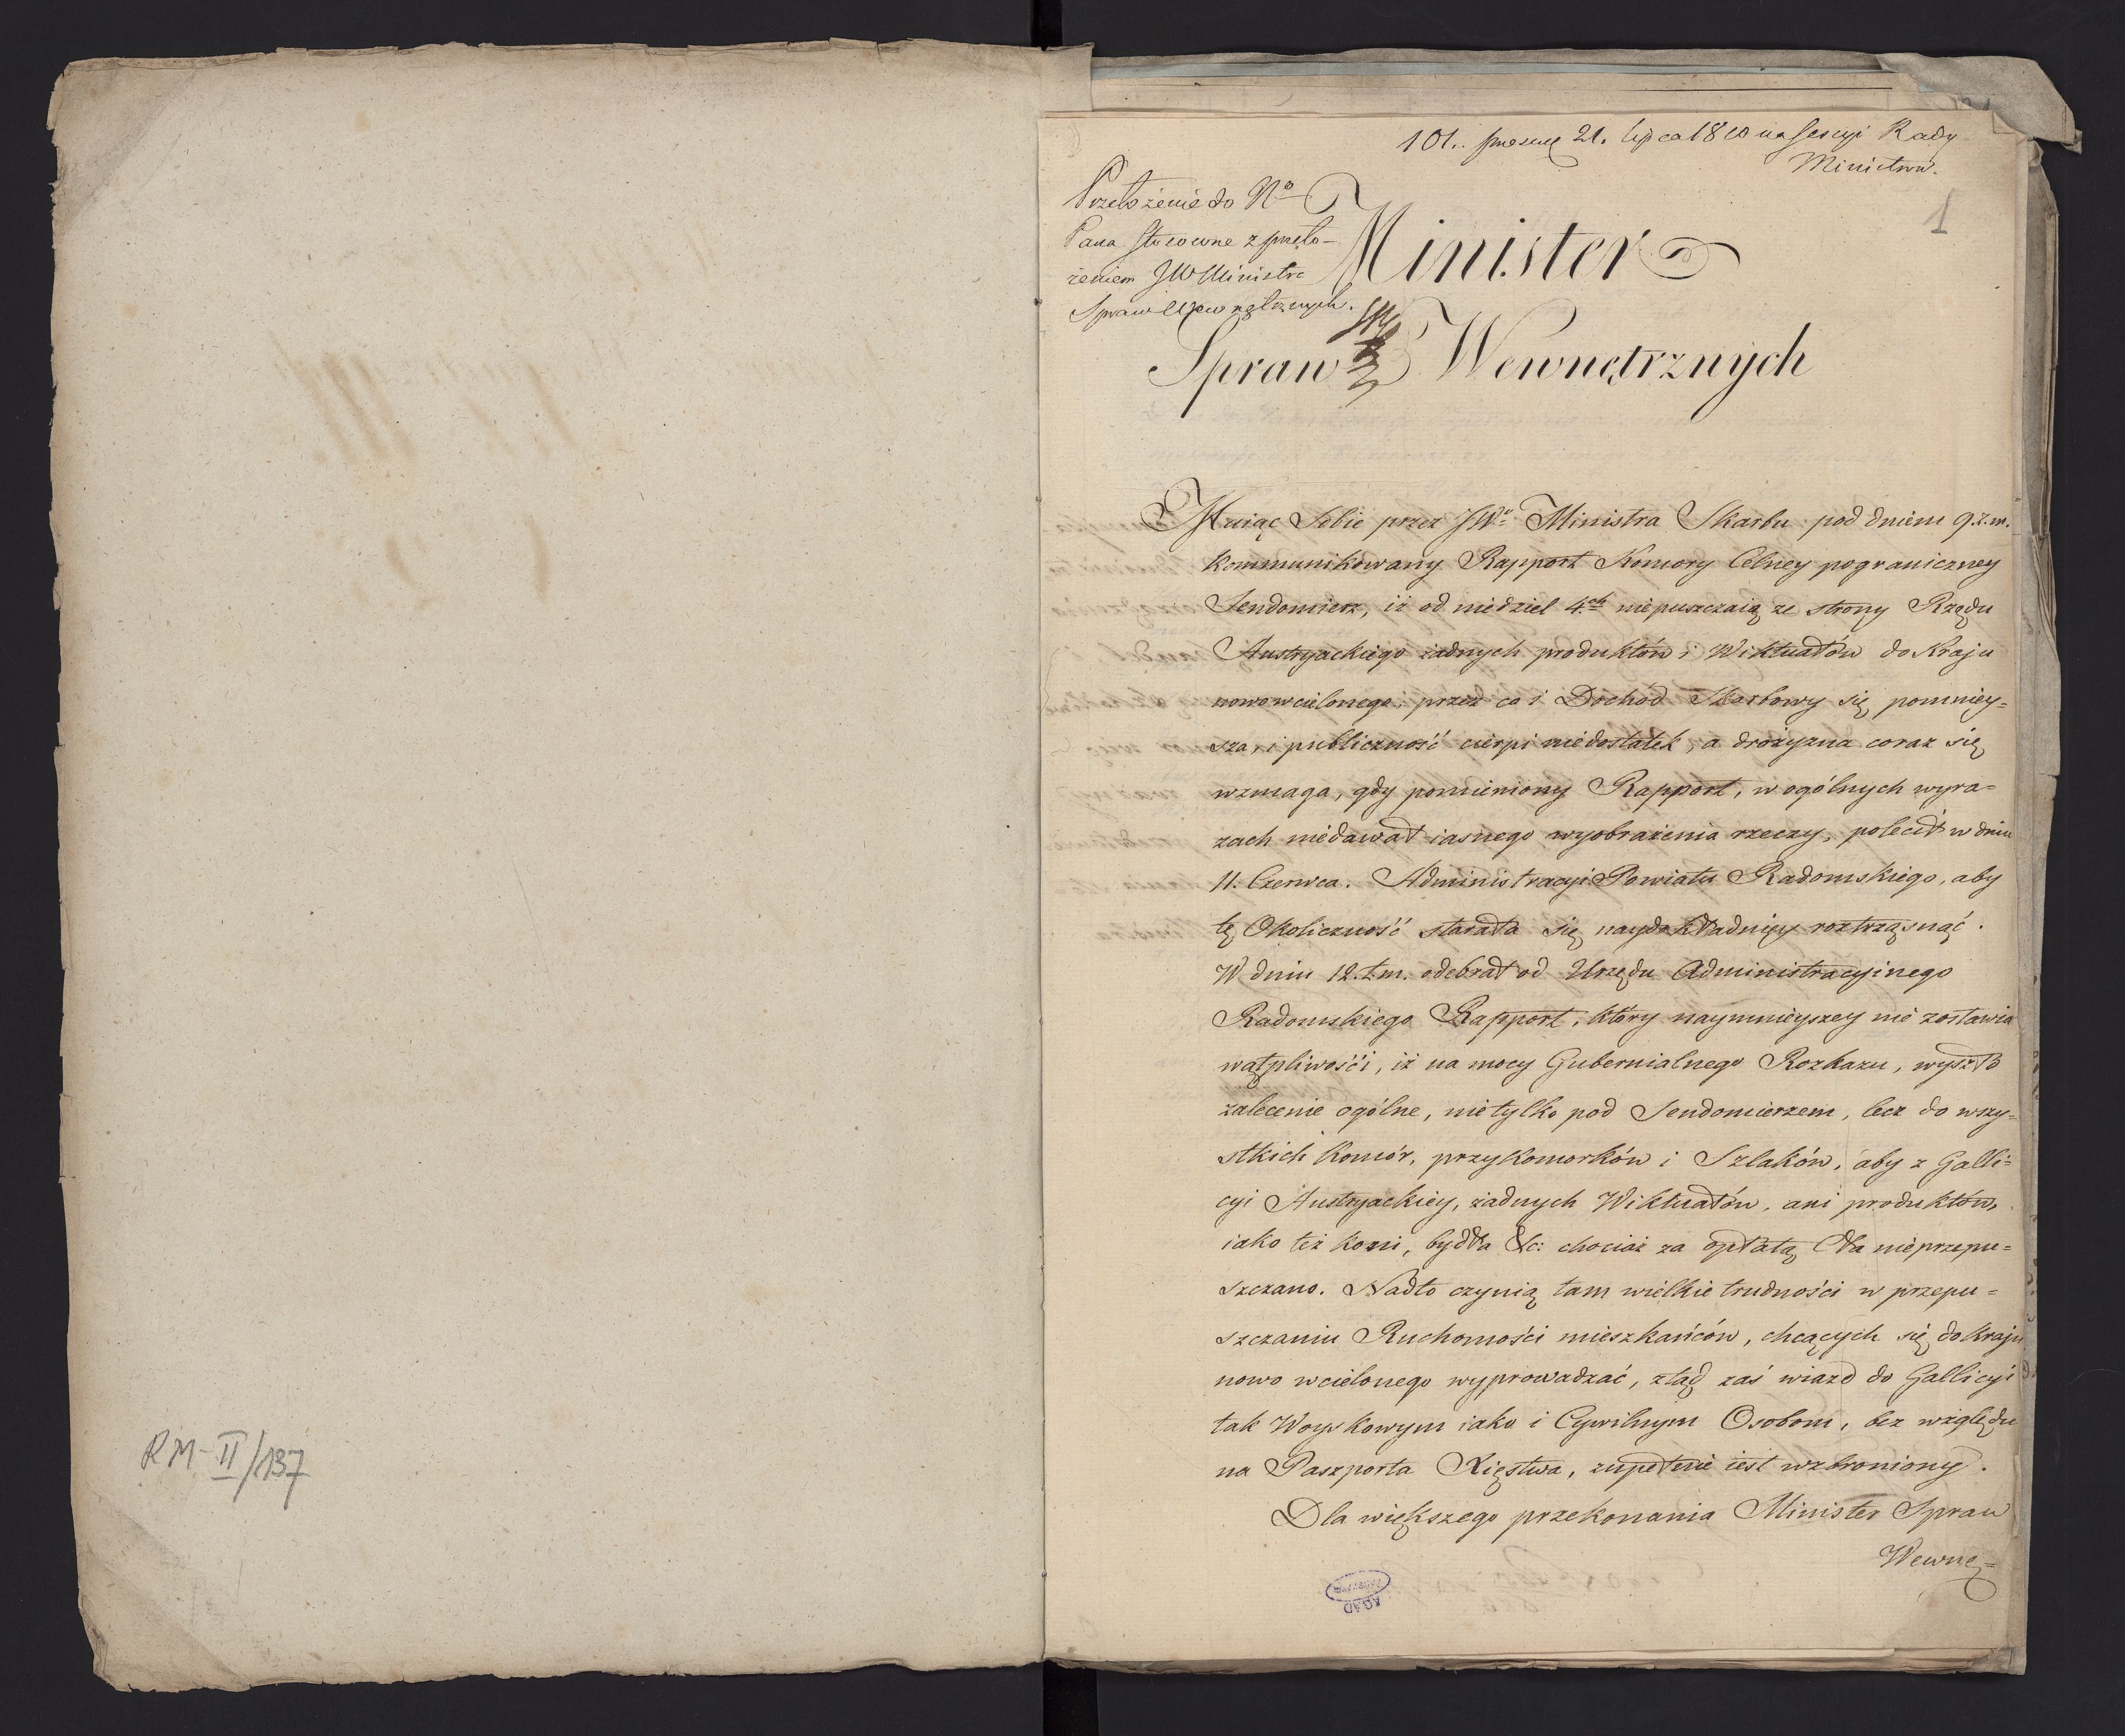 RM-II/137
101. 21. lipca 1810 na Sessyi Rady
Ministrów.
1
Przełożenie do No
Pana stosowne z przeło-
żeniem JW Ministra
Spraw Wewnętrznych.
Minister
Spraw Wewnętrznych
Maiąc Sobie przez JWo Ministra Skarbu pod dniem 9. z. m.
kommunikowany Rapport Komory Celney pograniczney
Sendomierz, iż od niedziel 4ch niepuszczaią ze strony Rządu
Austryackiego żadnych produktów i Wiktuałów do Kraju
nowowcielonego: przez co i Dochód Skarbowy się pomniey=
sza, i publiczność cierpi niedostatek, a drożyzna coraz się
wzmaga, gdy pomieniony Rapport, w ogólnych wyra=
zach niedawał iasnego wyobrażenia rzeczy, polecił w dniu
11. Czerwca. Administracyi Powiatu Radomskiego, aby
tę Okoliczność starała się naydokładniey roztrząsnąć.
W dniu 12. t. m. odebrał od Urzędu Administracyinego
Radomskiego Rapport, który naymnieyszey nie zostawia
wątpliwośći, iż na mocy Gubernialnego Rozkazu, wyszło
zalecenie ogólne, nietylko pod Sendomierzem, lecz do wszy=
stkich Komór, przykomorków i Szlaków, aby z Galli=
cyi Austryackiey, żadnych Wiktuałów, ani produktów,
iako też koni, bydła &c: chociaż za opłatą Cła nieprzepu=
szczano. Nadto czynią tam wielkie trudności w przepu=
szczaniu Ruchomości mieszkańców, chcących się do Kraju
nowo wcielonego wyprowadzać, ztąd zaś wiazd do Gallicyi
tak Woyskowym iako i Cywilnym Osobom, bez względu
na Paszporta Xięstwa, zupełnie iest wzbroniony.
Dla większego przekonania Minister Spraw
Wewnę=
AGAD